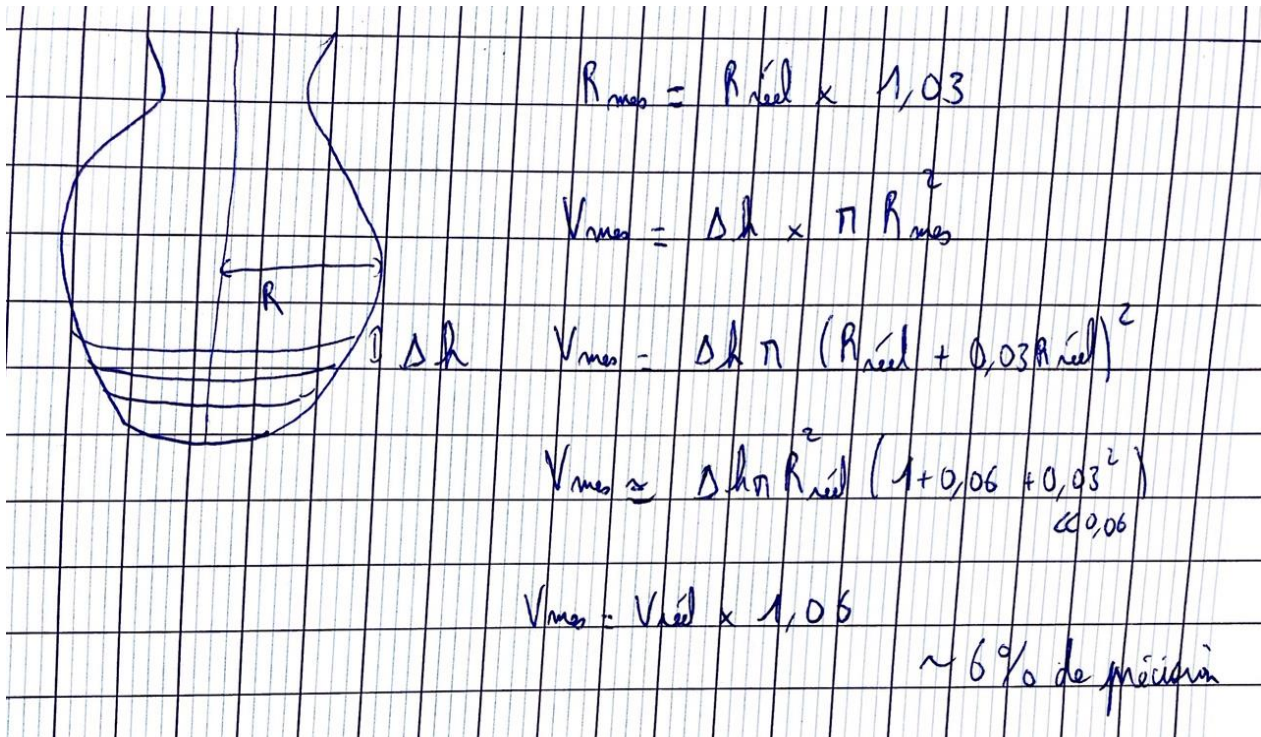 R mes = R réel x 1,03
V mes = Δh x π R²mes
R
Δh
V mes = Δh π (R réel + 0,03 R réel)²
V mes ≃ Δh π R²réel (1 + 0,06 + 0,03²)
<< 0,06
V mes = V réel x 1,06
~ 6% de précision